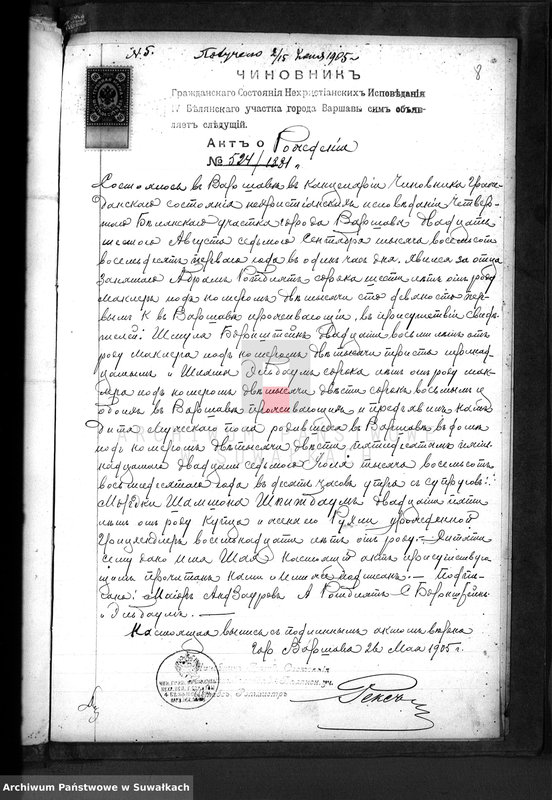 N. 5. Получено 2/15 Іюня 1905 г.
8
ЧИНОВНИКЪ
Гражданскаго Состоянія Нехристіанскихъ Исповѣданія
IV Бѣлянскаго участка города Варшавы симъ объяв-
ляетъ слѣдущій.
Актъ о Рожденіи
№ 524/1881
Состоялось въ Варшавѣ въ Канцеляріи Чиновника Граж-
данскаго состоянія нехристіанскихъ исповѣданій Четвер-
таго Бѣлянскаго участка города Варшавы Двадцать
шестого Августа седьмого Сентября тысяча восемьсотъ
восемьдесятъ перваго года въ одинъ часъ дня. Явился за отца
Занятаго Абрамъ Ротблятъ сорока шести лѣтъ отъ роду
Маклеръ подъ номеромъ двѣ тысячи сто девяносто пер-
вымъ К въ Варшавѣ проживающій, въ присутствіи свидѣ-
телей: Шмуля Боринштейнъ двадцати восьми лѣтъ отъ
роду маклера подъ номеромъ двѣ тысячи триста
и Шлама Эльбаумъ сорока лѣтъ отъ роду мак-
лера подъ номеромъ двѣ тысячи двѣсти сорокъ восьмымъ
обоихъ въ Варшавѣ проживающихъ и предъявилъ намъ
дитя Мужескаго пола родившееся въ Варшавѣ въ домѣ
подъ номеромъ двѣ тысячи двѣсти
двадцать седьмого Іюля тысяча восемьсотъ
восьмидесятаго года въ десять часовъ утра съ супруговъ:
Шамшона Шпижбаумъ двадцати пяти
лѣтъ отъ роду Купца и жены его Рухли урожденной
восемнадцати лѣтъ отъ роду.— Дитяти
сему дано имя Шая Настоящій актъ присутствую-
щимъ прочитанъ нами и ими подписанъ.— Подпи-
сали: Маіоръ А Ротблятъ С Боринштейнъ
и Эльбаумъ. —
Настоящая выпись съ подлиннымъ актомъ вѣрна
Гор. Варшава 2 Мая 1905 г.
Рексъ
Archiwum Państwowe w Suwałkach